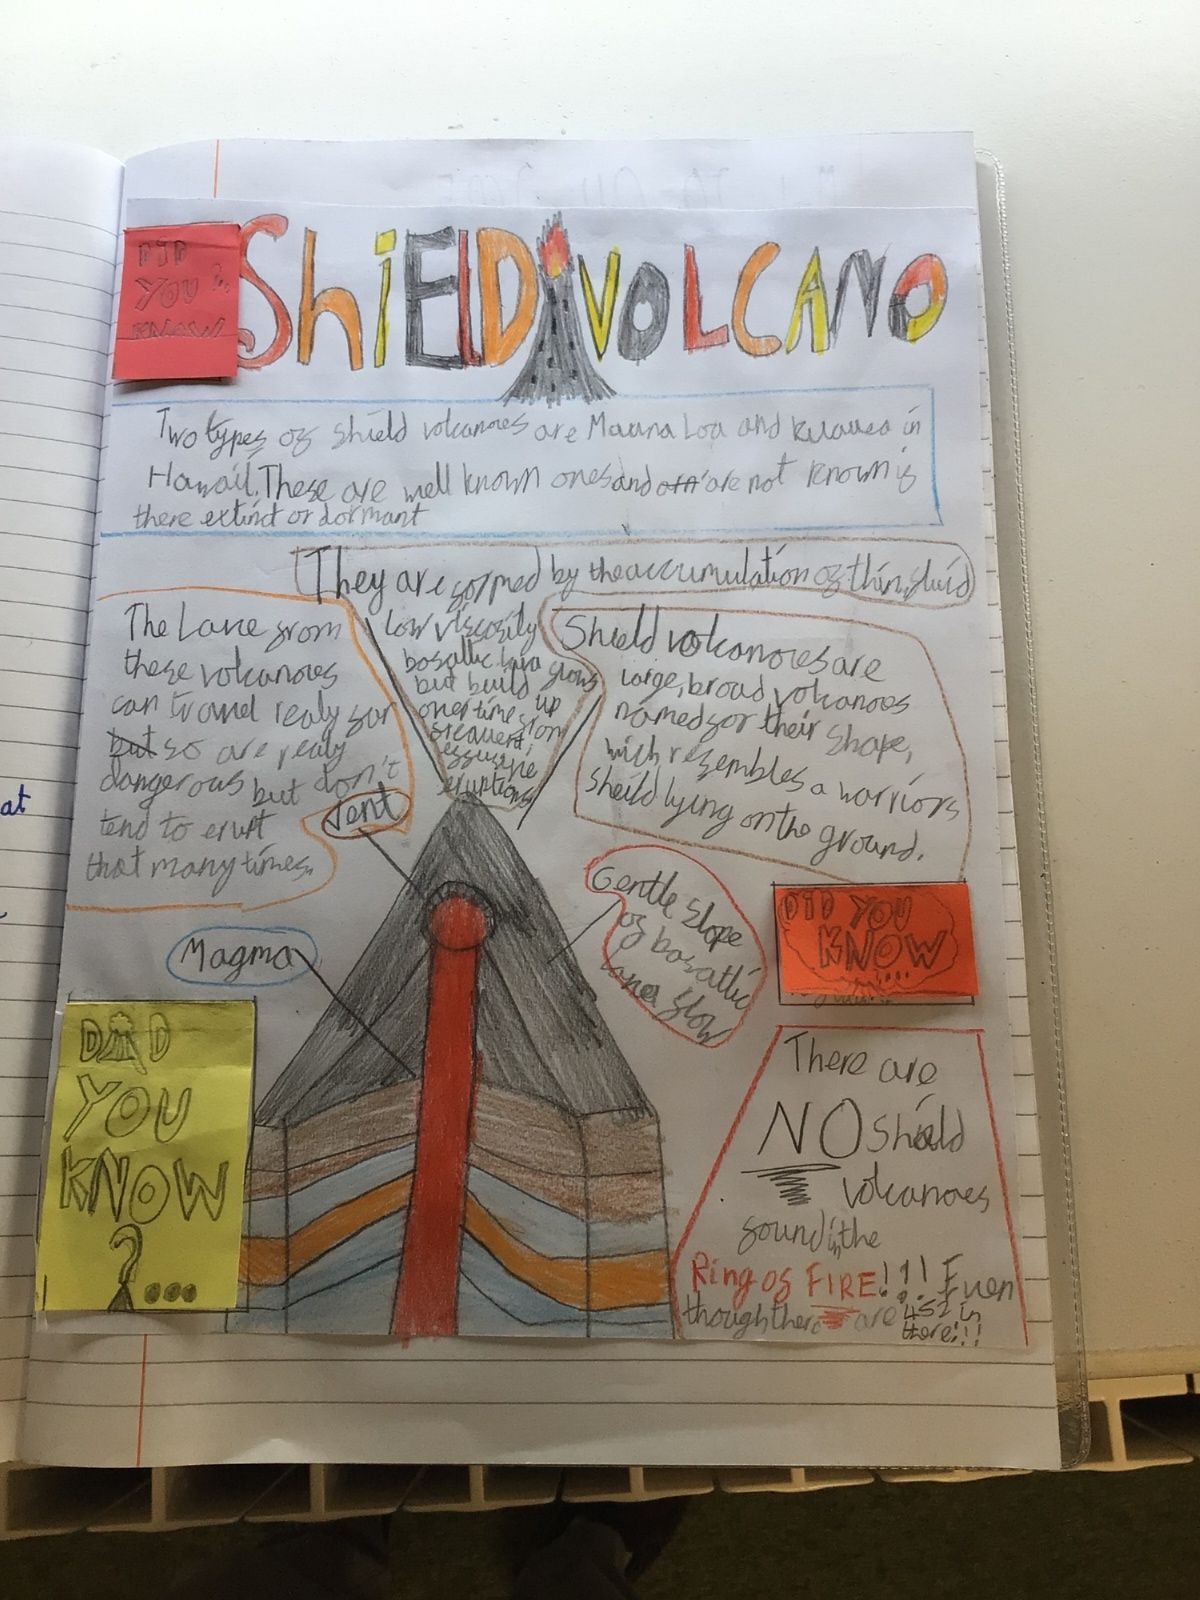 DID
YOU
KNOW!
ShiELD VOLCANO
Two types of shield volcanoes are Mauna Loa and Kilauea in
Hawaii. These are well known ones and are not known is
there extinct or dormant
They are formed by the accumulation of thin, fluid
low viscosity
basaltic lava flows
but build up
over time from
frequent,
effusive
eruptions
The Lave from
these volcanoes
can travel realy far
but so are realy
dangerous but don't
tend to erupt
that many times.
Shield volcanoes are
large, broad volcanoes
named for their shape,
wich resembles a warriors
sheild lying on the ground.
Vent
Magma
Gentle slope
of basaltic
lava flow
DID YOU
KNOW
...
DID
YOU
KNOW
?...
There are
NO Shield
volcanoes
found in the
Ring of FIRE!!! Even
though there are 452 in
there!!!
at